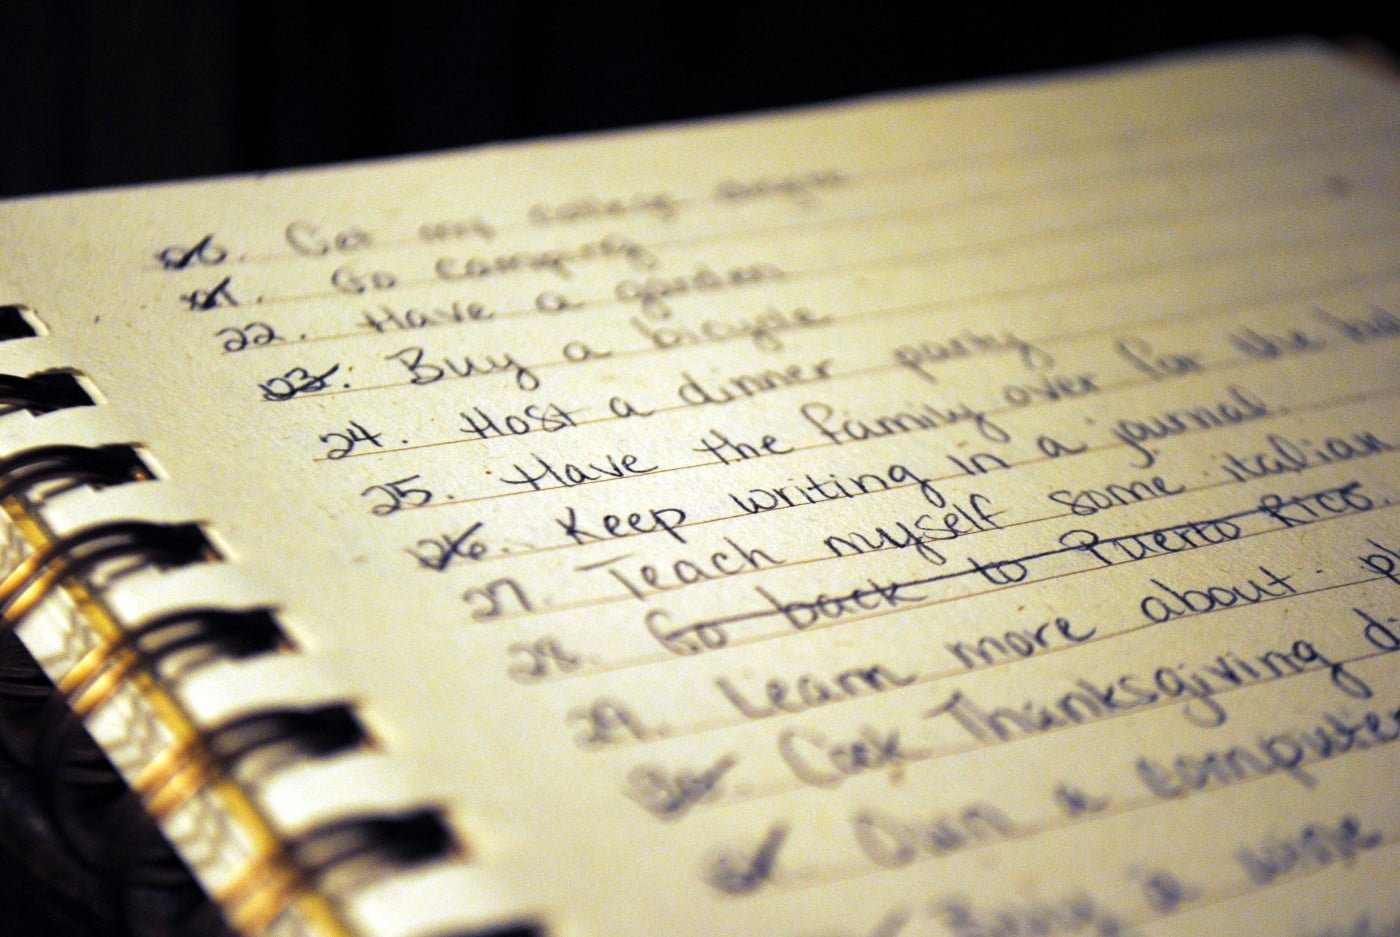 20. Go
21. Go camping
22. Have a garden
23. Buy a bicycle
24. Host a dinner party
25. Have the family over for the
26. Keep writing in a journal.
27. Teach myself some italian
28. Go back to Puerto Rico.
29. Learn more about
30. Cook Thanksgiving
31. Own a computer
Buy a wine